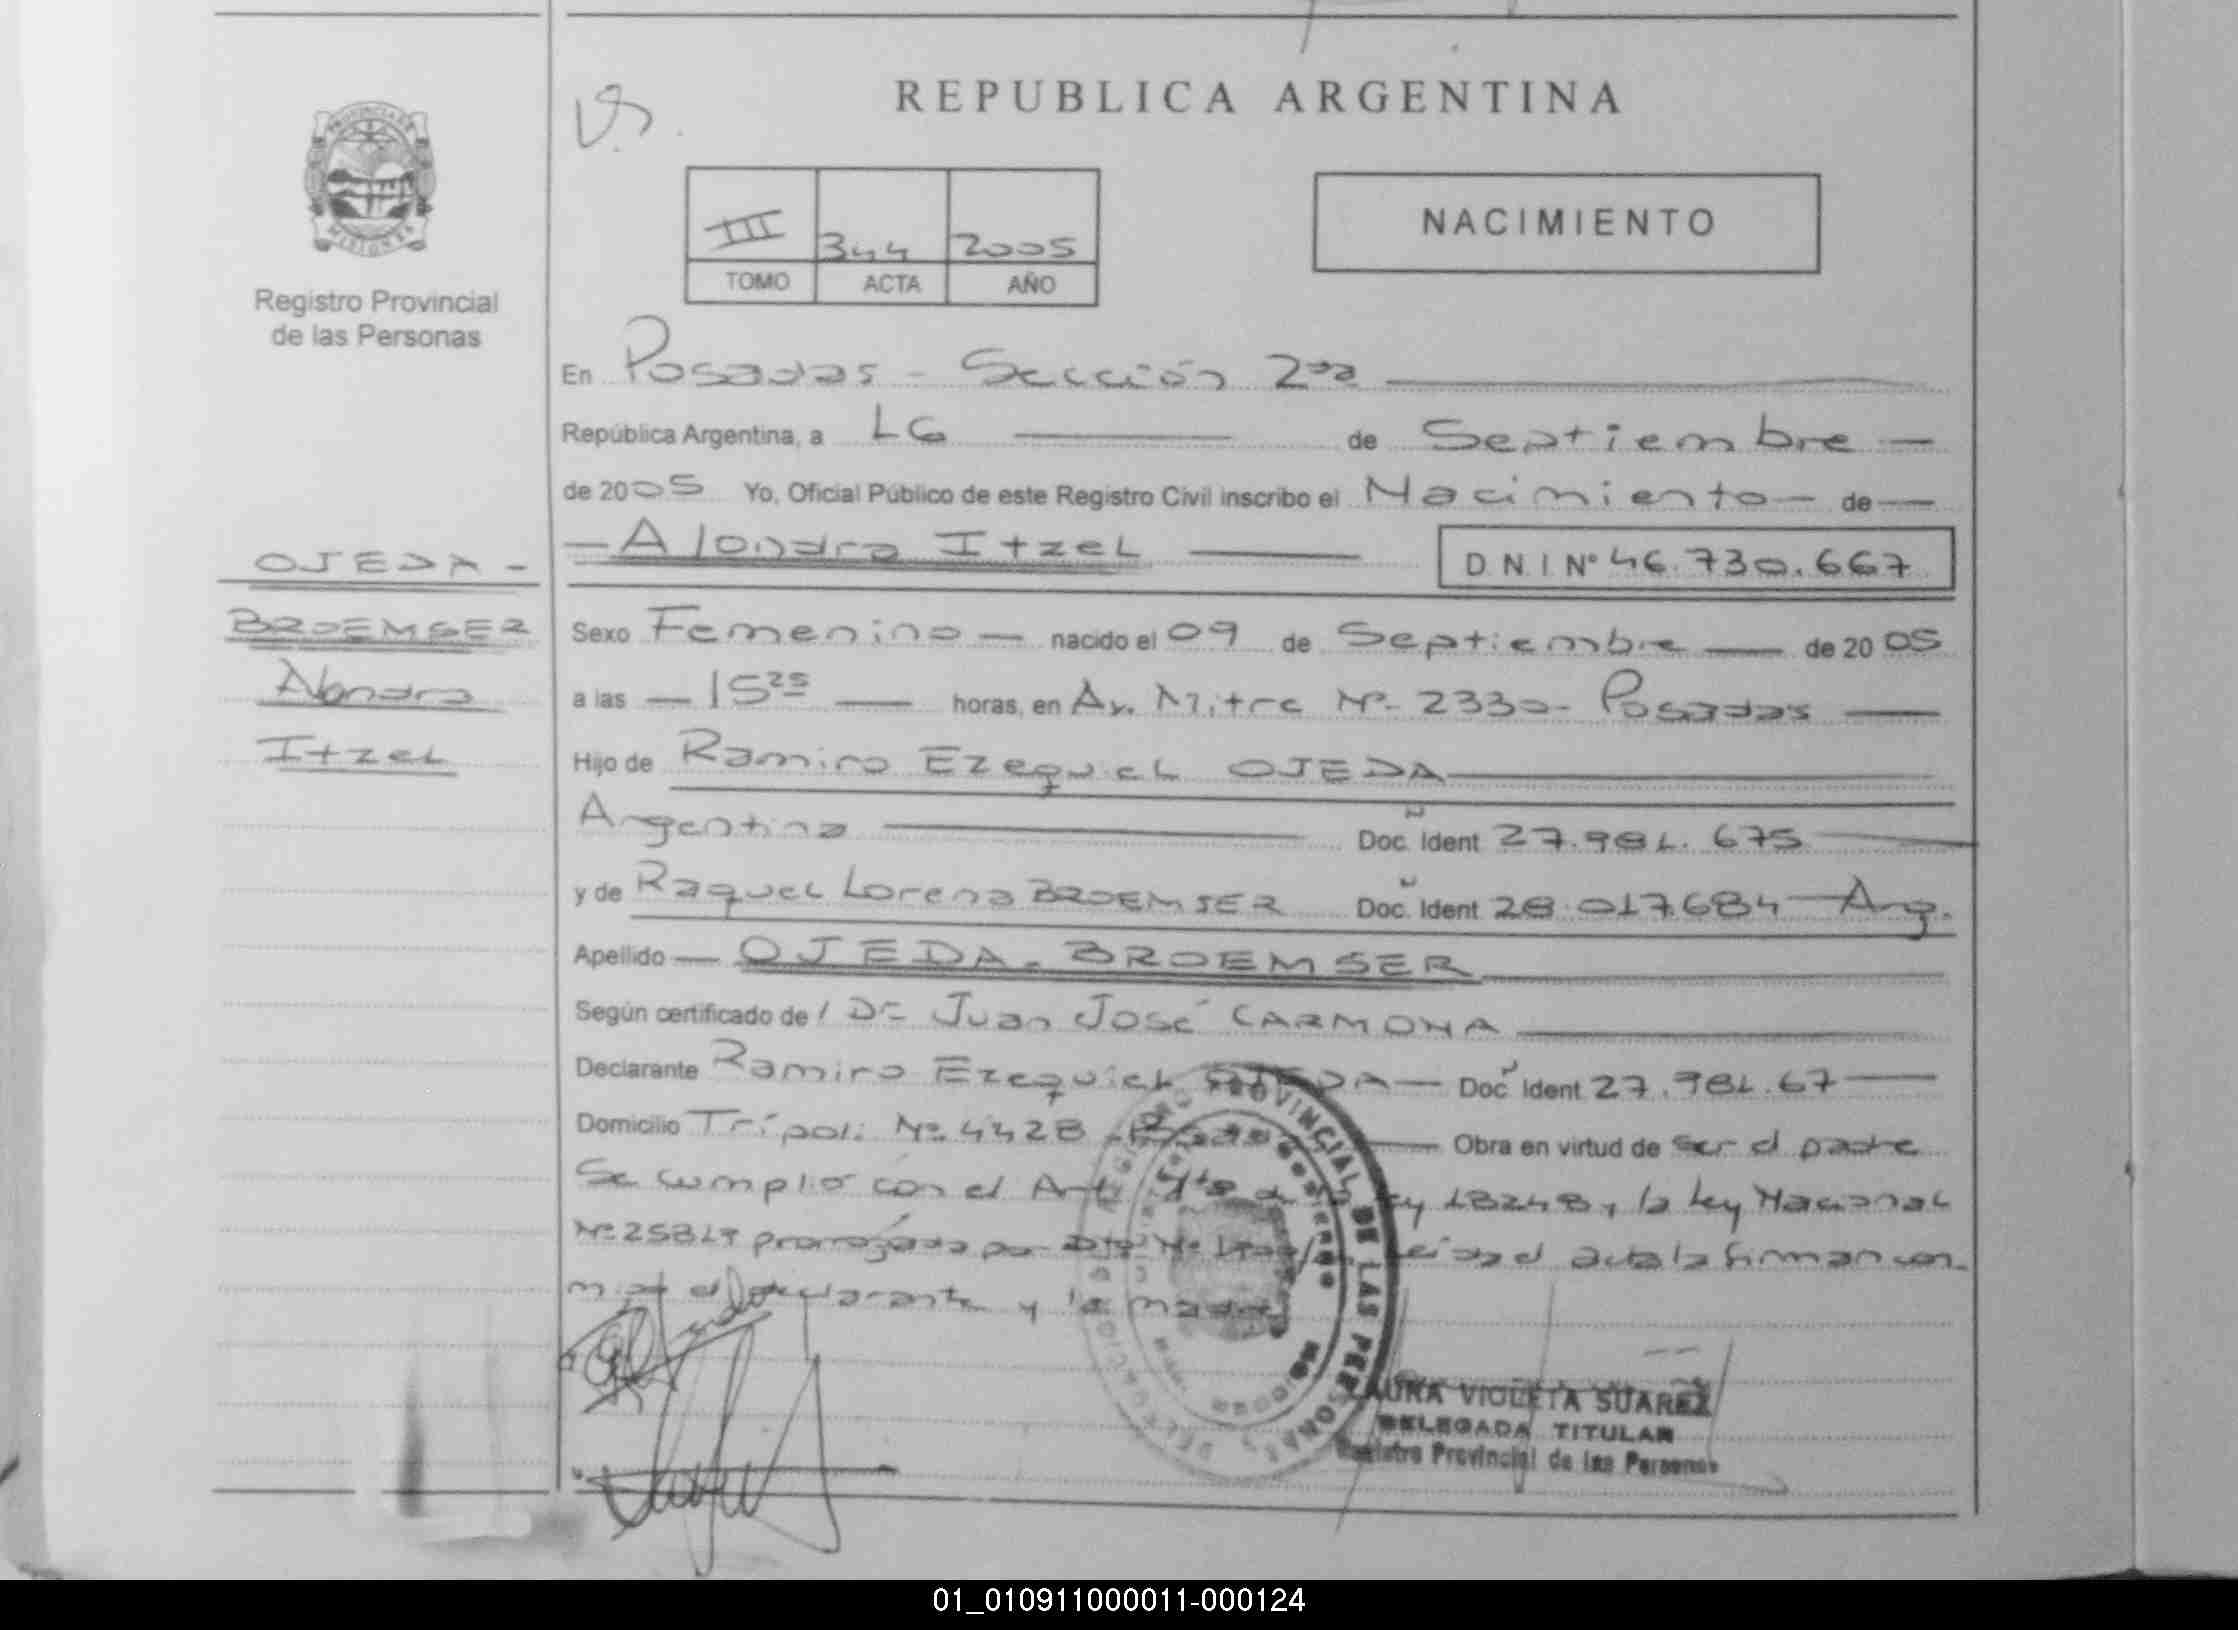 REPUBLICA ARGENTINA
PROVINCIA DE
MISIONES
Registro Provincial
de las Personas
III 344 2005
TOMO ACTA AÑO
NACIMIENTO
En Posadas - Sección 2da
República Argentina, a 16 de Septiembre
de 2005 Yo, Oficial Público de este Registro Civil inscribo el Nacimiento de
Alondra Itzel
D.N.I Nº 46.730.667
OJEDA -
BROEMSER
Alondra
Itzel
Sexo Femenino nacido el 09 de Septiembre de 2005
a las 15 25 horas, en Av. Mitre Nº 2330 - Posadas
Hijo de Ramiro Ezequiel OJEDA
Argentina Doc. Ident 27.981.675
y de Raquel Lorena BROEMSER Doc. Ident 28.017.684 Arg.
Apellido OJEDA - BROEMSER
Según certificado de / Dr Juan José CARMONA
Declarante Ramiro Ezequiel OJEDA Doc Ident 27.981.67
Domicilio Trípoli Nº 4428 - Posadas Obra en virtud de ser el padre
Se cumplió con el Art. de la Ley 18248, la Ley Nacional
Nº 25819 prorrogada por Dto Nº leída el acta la firman con-
migo el declarante y la madre
REGISTRO PROVINCIAL DE LAS PERSONAS
LAURA VIOLETA SUAREZ
DELEGADA TITULAR
Registro Provincial de las Personas
01_010911000011-000124